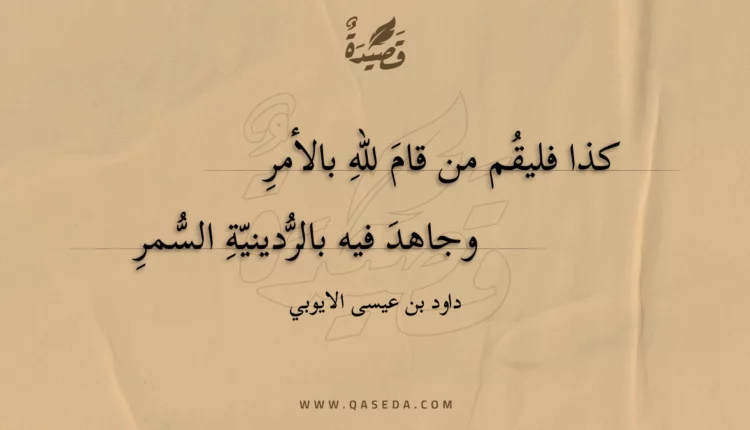 قَصِيْدَةٌ
كذا فليقُم من قامَ للهِ بالأمرِ
وجاهدَ فيه بالرُّدينيّةِ السُّمرِ
داود بن عيسى الايوبي
WWW.QASEDA.COM